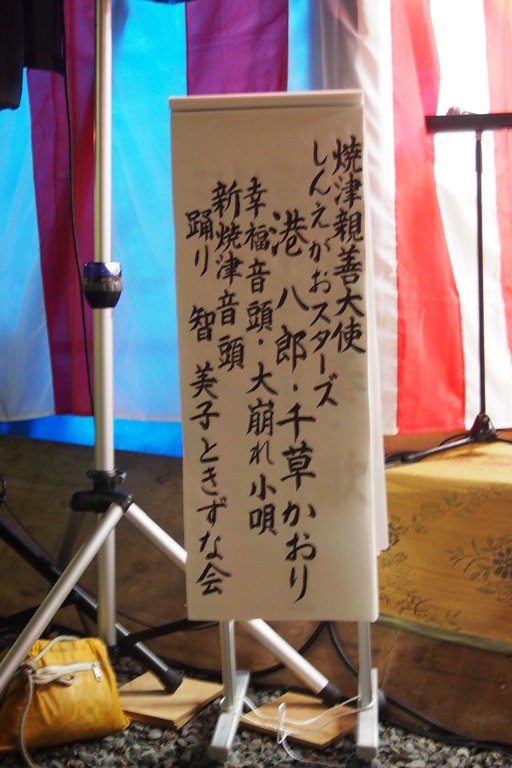 焼津親善大使
しんえがおスターズ
港 八郎・千草かおり
幸福音頭・大崩れ小唄
新焼津音頭
踊り 智美子ときずな会